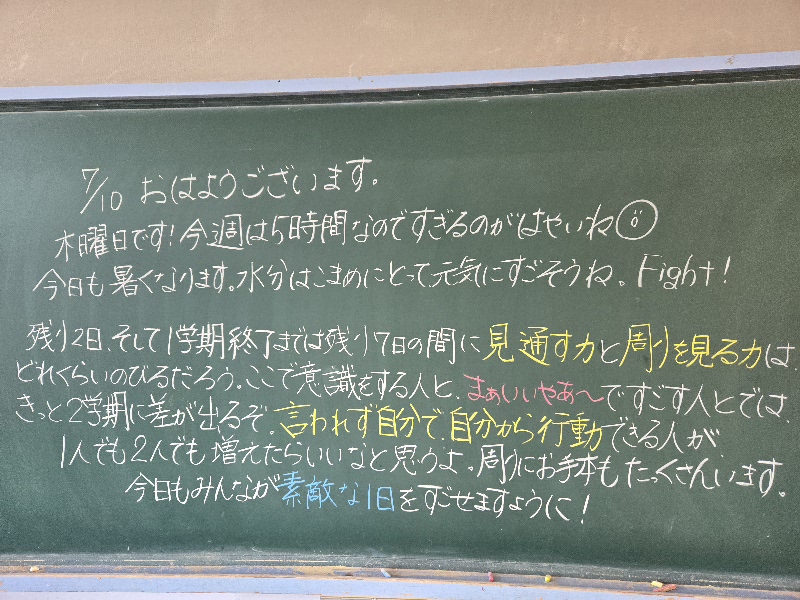 7/10 おはようございます。
木曜日です！今週は5時間なのですぎるのがはやいね
今日も暑くなります。水分はこまめにとって元気にすごそうね。Fight！
残り2日、そして1学期終了までは残り7日の間に見通す力と周りを見る力は、
どれくらいのびるだろう。ここで意識をする人と、まぁいいやぁ～ですごす人とでは、
きっと2学期に差が出るぞ。言われず自分で、自分から行動できる人が、
1人でも2人でも増えたらいいなと思うよ。周りにお手本もたっくさんいます。
今日もみんなが素敵な1日をすごせますように！